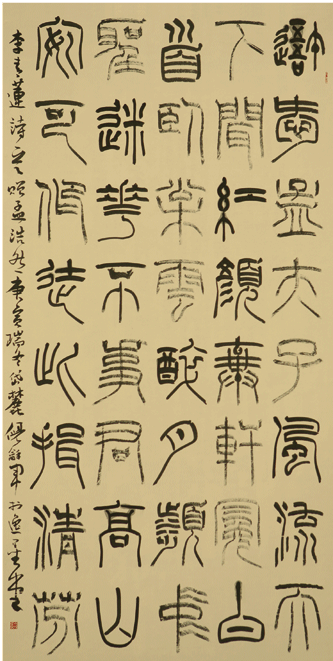 吾愛孟夫子風流天
下聞紅顏棄軒冕白
首臥松雲醉月頻中
聖迷花不事君高山
安可仰徒此揖清芬
李青蓮詩贈孟浩然庚寅麓